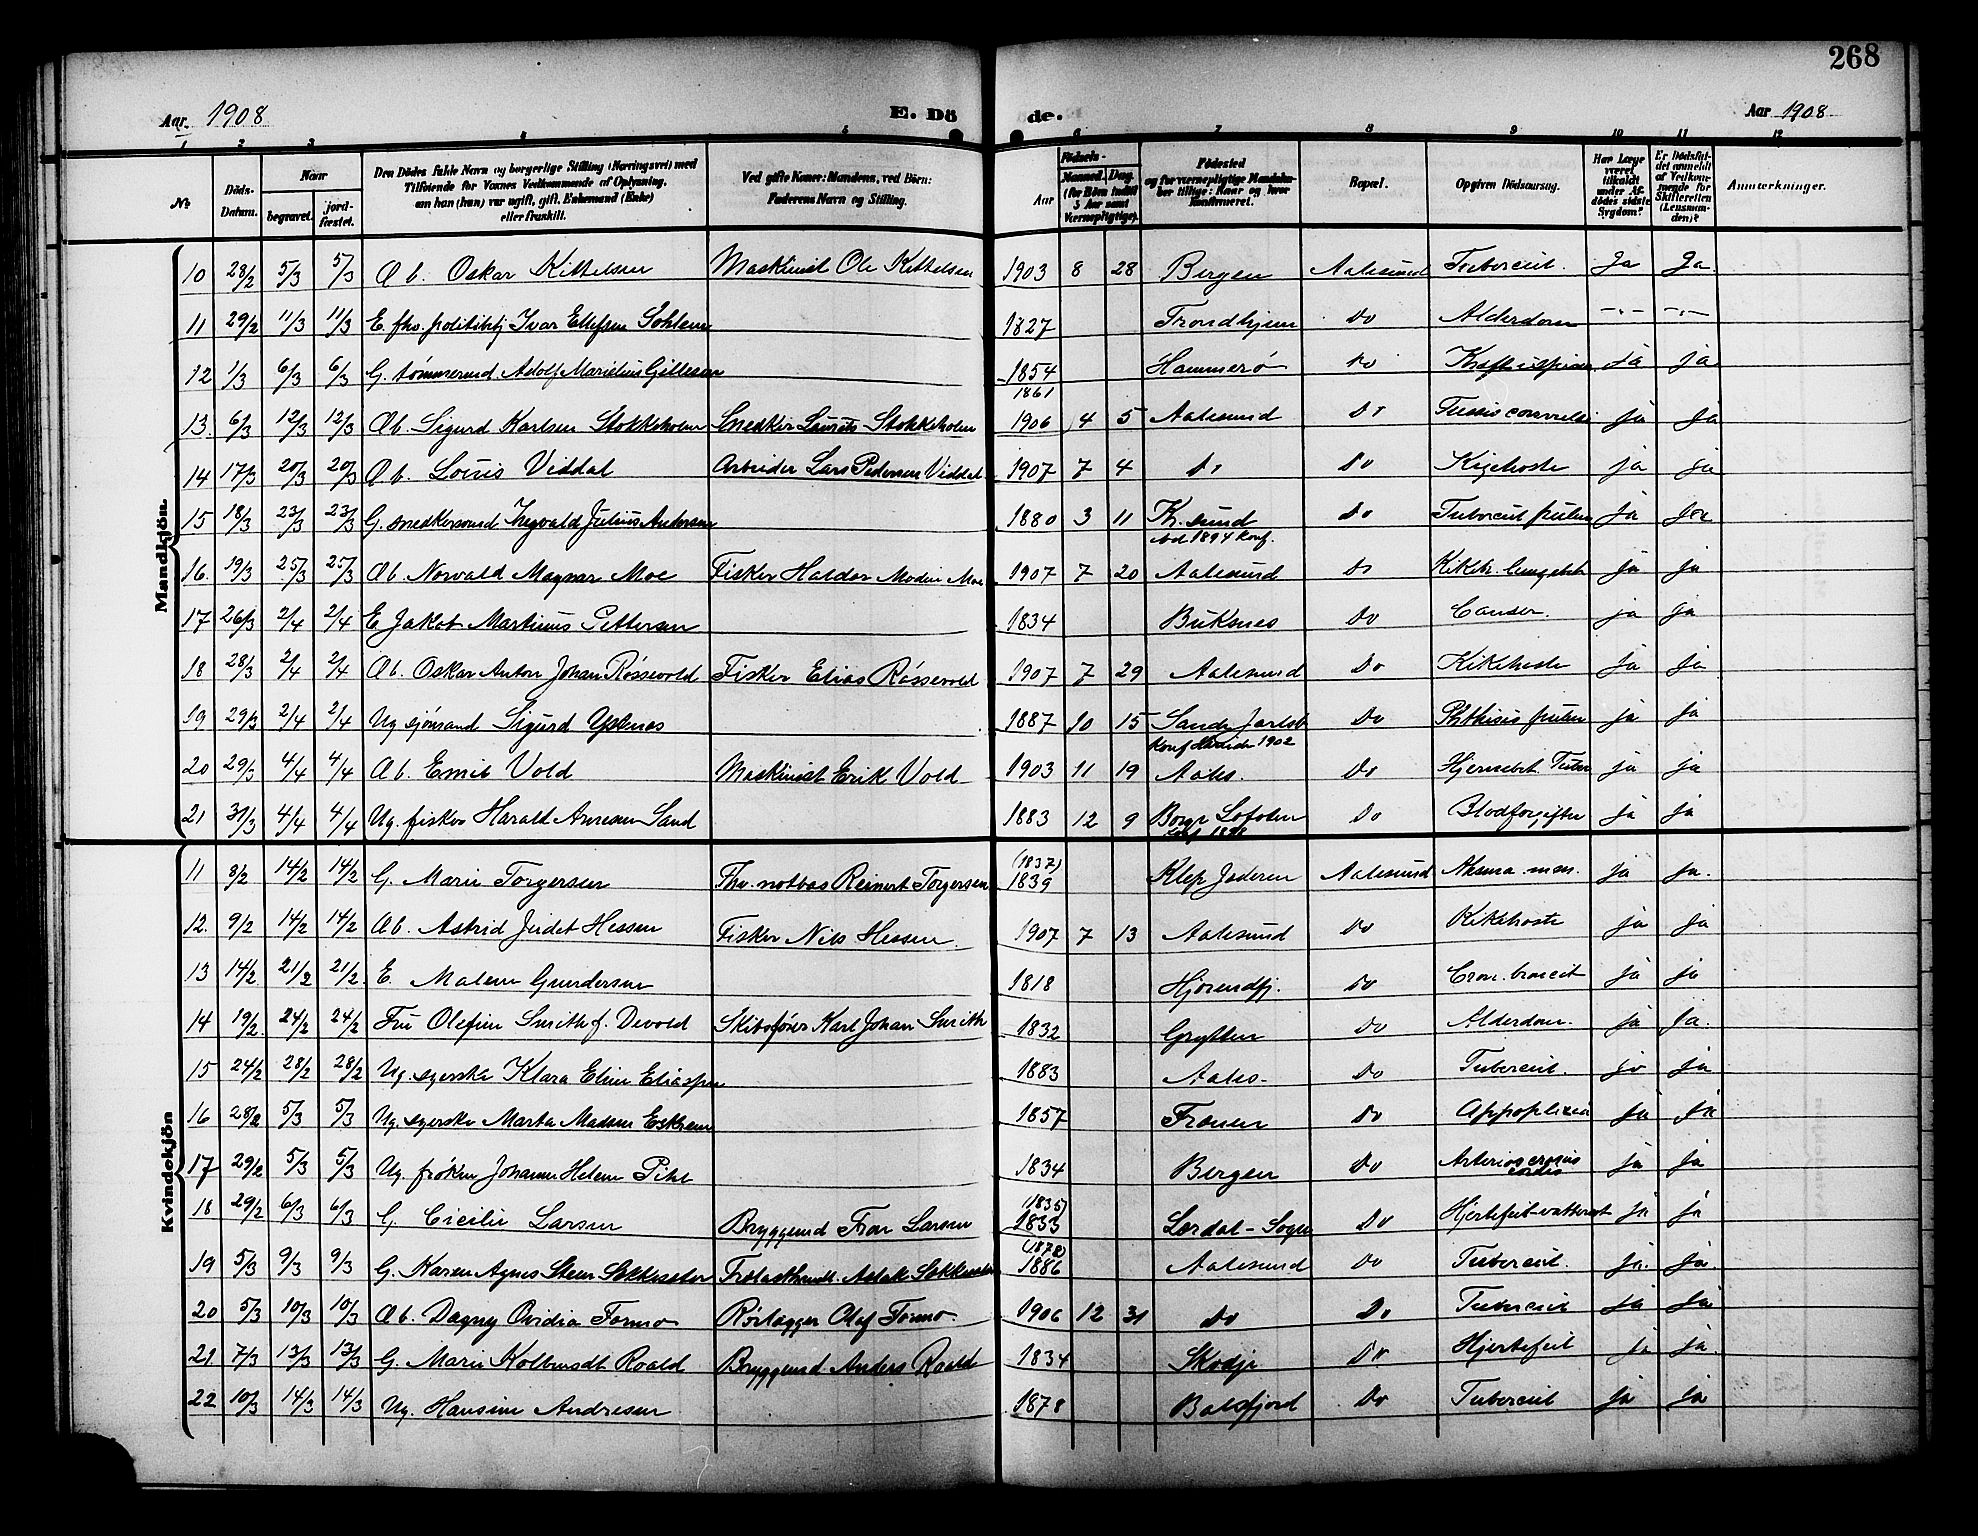 268
Aar 1908 E. Dö de. Aar 1908
1 2 3 4 5 6 7 8 9 10 11 12
№ Döds-Datum. Naar begravet. jord-fæstet. Den Dödes fulde Navn og borgerlige Stilling (Næringsvei) med Tilföiende for Voxnes Vedkommende af Oplysning, om han (hun) var ugift, gift, Enkemand (Enke) eller fraskilt. Ved gifte Koner: Mandens, ved Börn: Faderens Navn og Stilling. Aar Födsels- Maaned. Dag. (for Börn indtil 5 Aar samt Værnepligtige). Födested og for værnepligtige Mandskaber tillige: Naar og hvor konfirmeret. Bopæl. Opgiven Dödsaarsag. Har Læge været tilkaldt under Afdödes sidste Sygdom? Er Dödsfaldet anmeldt af Vedkommende for Skifteretten (Lensmanden)? Anmerkninger.
Mandkjön.
10 28/2 5/3 5/3 Æb. Oskar Kittelsen Maskinist Ole Kittelsen 1903 8 28 Bergen Aalesund Tubercul. Ja Ja
11 29/2 11/3 11/3 E. fhv. politibtj Ivar Ellefsen 1827 Trondhjem Do Alderdom -"- -"-
12 1/3 6/3 6/3 G. tømmermd. Adolf Marelius 1854 1861 Hammerø Do ja ja
13. 6/3 12/3 12/3 Æb. Sigurd Karlsen Stokkeholm Snedker Laurits Stokkeholm 1906 4 5 Aalesund Do Tussis ja ja
14 17/3 20/3 20/3 Æb. Louis Viddal Arbeider Lars Pedersen Viddal 1907 7 4 Do Do Kighoste ja ja
15 18/3 23/3 23/3 G. snedkersvend Ingvald Julius Andersen 1880 3 11 Kr.sund 1894 konf. Do Tubercul pulm ja ja
16. 19/3 25/3 25/3 Æb. Norvald Magnar Moe Fisker Haldor Moe 1907 7 20 Aalesund Do Kikh. lungebet ja ja
17 26/3 2/4 2/4 E. Jakob Martinus Pettersen 1834 Buksnes Do Cancer. ja ja
18 28/3 2/4 2/4 Æb. Oskar Anton Johan Røssevold Fisker Elias Røssevold 1907 7 29 Aalesund Do Kikhoste ja ja
19 29/3 2/4 2/4 Ug. sjømand Sigurd 1887 10 15 Sande Jarlsb konf 1902 Do Phthisis pulm ja ja
20 29/3 4/4 4/4 Æb. Emil Vold Maskinist Erik Vold 1903 11 19 Aales. Do Hjernebet. Tuber ja ja
21 31/3 4/4 4/4 Ug. fisker Harald Sand 1883 12 9 Borge Lofoten konf 1898 Do Blodforgiftn ja ja
Kvindekjön
11 8/2 14/2 14/2 G. Marie Torgersen Fhv. notbas Reinert Torgersen (1837) 1839 Klep Jæderen Aalesund ja ja.
12. 9/2 14/2 14/2 Æb. Astrid Judet Hessen Fisker Nils Hessen. 1907 7 13 Aalesund Do Kikhoste ja ja
13 14/2 21/2 21/2 E. Malene Gundersen 1818 Hjørundfj. Do Cron. bronchit ja ja
14 19/2 24/2 24/2 Fru Olefine Smith f. Devold Skibsfører Karl Johan Smith 1832 Grytten Do Alderdom. ja ja.
15 24/2 28/2 28/2 Ug. syerske Klara Eline Eliassen 1883 Aales. Do Tubercul. ja ja
16 28/2 5/3 5/3 Ug. syerske Marta Madsen Eskrem 1857 Frænen Do Appoplexia ja ja
17 29/2 5/3 5/3 Ug. frøken Johanne Helene Pihl 1834 Bergen Do cordis ja ja
18 29/2 6/3 6/3 G. Cicilie Larsen Bryggemd Larsen (1835) 1833 Lærdal-Sogn Do Hjertefeil-vattersot ja ja
19 5/3 9/3 9/3 G. Karen Agnes Steen Sekkeseter Trælasthandl. Aslak Sekkeseter (1878) 1886 Aalesund Do Tubercul. ja. ja.
20 5/3 10/3 10/3 Æb. Dagny Ovidia Formo Rørlægger Olaf Formo. 1906 12 31 Do Do Tubercul ja ja
21 7/3 13/3 13/3 G. Marie Kolbendt Roald Bryggemd Anders Roald 1834 Skodje Do Hjertefeil ja ja.
22 10/3 14/3 14/3 Ug. Hansine Andresen 1878 Balsfjord Do Tubercul ja ja